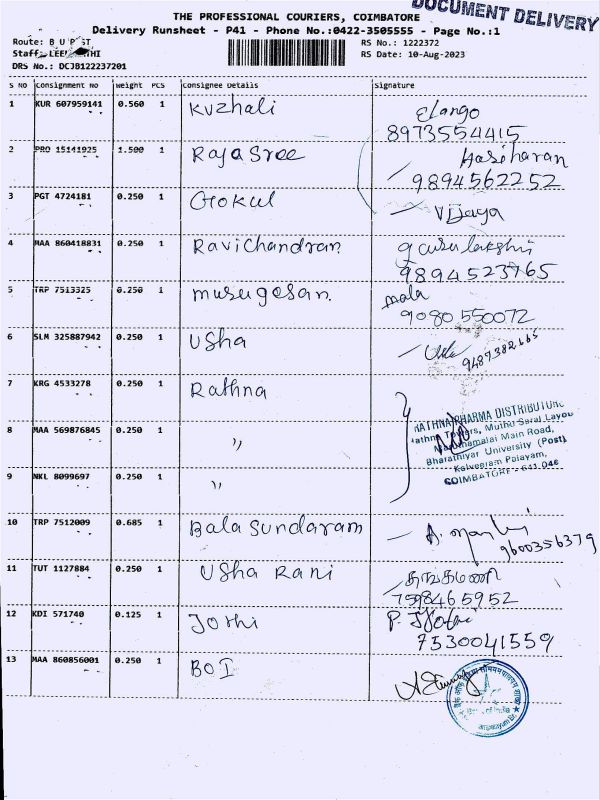 DOCUMENT DELIVERY
THE PROFESSIONAL COURIERS, COIMBATORE
Delivery Runsheet - P41 - Phone No.:0422-3505555 - Page No.:1
Route: B U P ST
RS No.: 1222372
Staff:
RS Date: 10-Aug-2023
DRS No.: DCJB122237201
S NO Consignment No Weight PCS Consignee Details Signature
1 KUR 607959141 0.560 1 Kuzhali Elango
8973554415
2 PRO 15141925 1.500 1 RajaSree Hariharan
9894562252
3 PGT 4724181 0.250 1 Gokul Vijaya
4 MAA 860418831 0.250 1 Ravichandran
9894523765
5 TRP 7513325 0.250 1 murugesan mala
9080 550072
6 SLM 325887942 0.250 1 Usha
9487382665
7 KRG 4533278 0.250 1 Rathna
RATHNA PHARMA DISTRIBUTORS
8 MAA 569876845 0.250 1 "
Rathna Towers, Muthu Saral Layou
Maruthamalai Main Road,
Bharathiyar University (Post)
9 NKL 8099697 0.250 1 "
Kalveeram Palayam,
COIMBATORE - 641 046
10 TRP 7512009 0.685 1 Bala Sundaram
9600356379
11 TUT 1127884 0.250 1 Usha Rani தங்கமணி
7598465952
12 KDI 571740 0.125 1 Jothi P. Jothi
7530041559
13 MAA 860856001 0.250 1 BOI